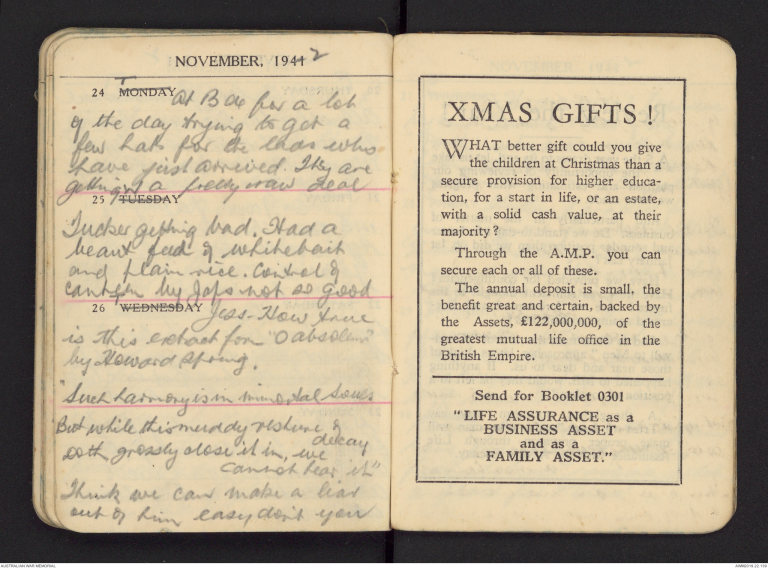 NOVEMBER, 1941 2
24 MONDAY
At B de for a lot
of the day trying to get a
few hats for the lads who
have just arrived. They are
getting a pretty raw deal
25 TUESDAY
Tucker getting bad. Had a
beaut feed of whitebait
and plain rice. Control of
canteen by Japs not so good
26 WEDNESDAY
Jess - How true
is this extract from "O Absalom"
by Howard Spring.
"Such harmony is in immortal souls
But while this muddy vesture of
decay
doth grossly close it in, we
cannot hear it"
Think we can make a liar
out of him easy don't you
XMAS GIFTS!
WHAT better gift could you give
the children at Christmas than a
secure provision for higher educa-
tion, for a start in life, or an estate,
with a solid cash value, at their
majority?
Through the A.M.P. you can
secure each or all of these.
The annual deposit is small, the
benefit great and certain, backed by
the Assets, £122,000,000, of the
greatest mutual life office in the
British Empire.
Send for Booklet 0301
"LIFE ASSURANCE as a
BUSINESS ASSET
and as a
FAMILY ASSET."
AUSTRALIAN WAR MEMORIAL